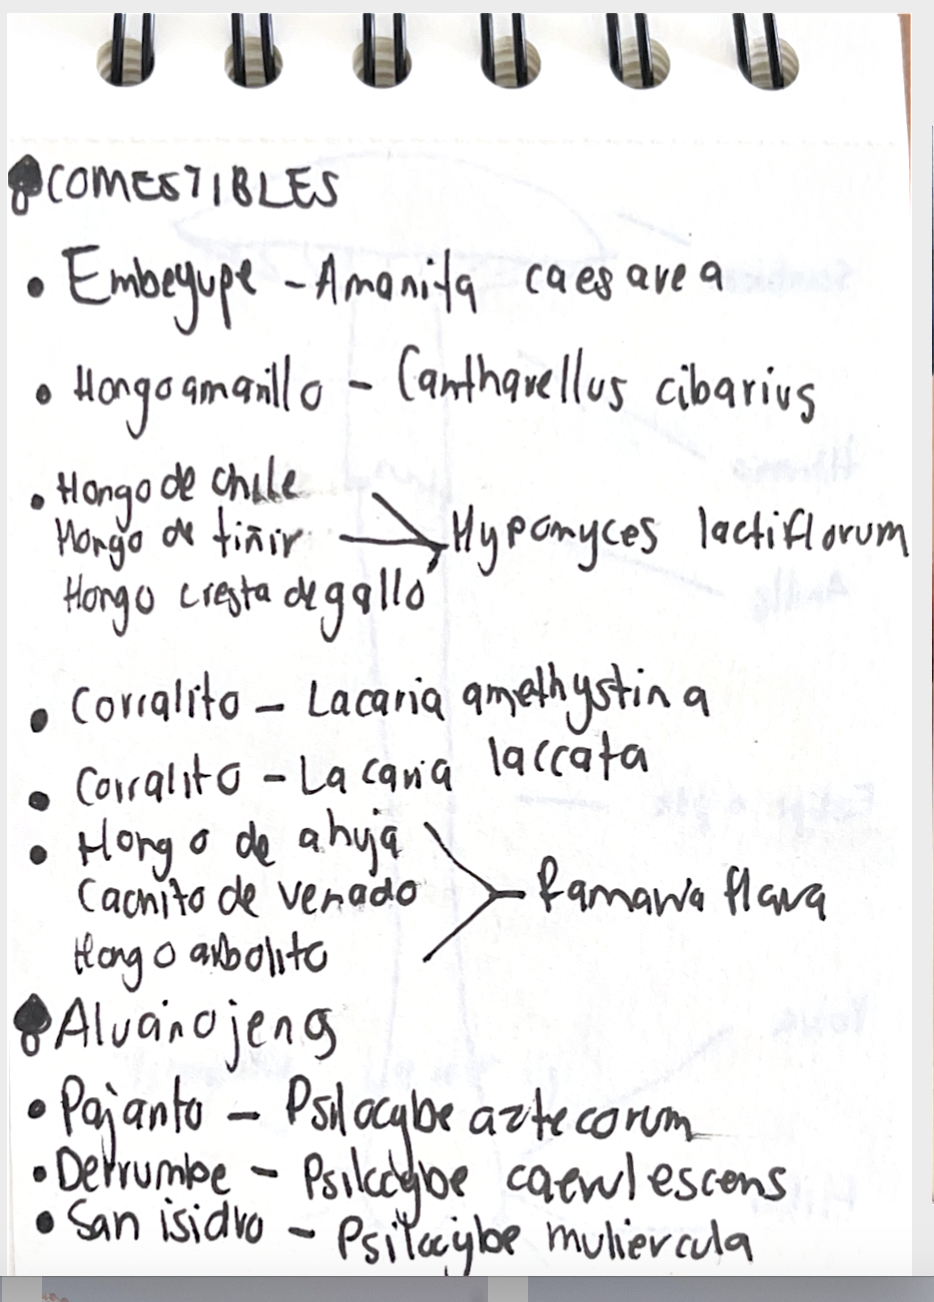 COMESTIBLES
• Embeyupe - Amanita caesarea
• Hongo amarillo - Cantharellus cibarius
• Hongo de chile
Hongo de tiñir
Hypomyces lactiflorum
Hongo cresta de gallo
• Corralito - Lacaria amethystina
• Corralito - Lacaria laccata
• Hongo de ahuja
Cachito de venado
Ramaria flava
Hongo arbolito
Aluainojenos
• Pajarito - Psilocybe aztecorum
• Derrumbe - Psilocybe caerulescens
• San isidro - Psilocybe muliercula